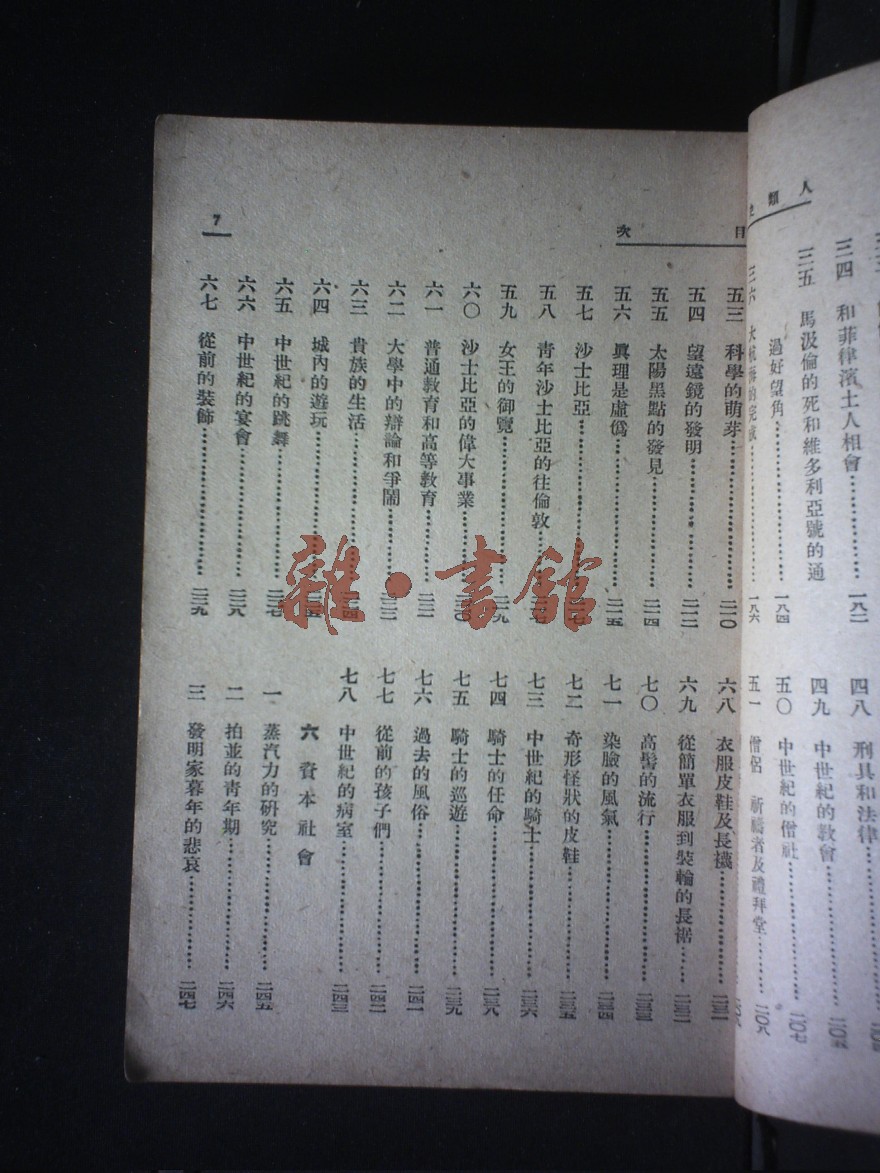 人類史
三四 和菲律濱土人相會……一八二
三五 馬汲倫的死和維多利亞號的通
過好望角……一八四
三六 大航海的完成……一八六
四八 刑具和法律
四九 中世紀的教會……二〇五
五〇 中世紀的僧社……二〇七
五一 僧侶 祈禱者及禮拜堂……二〇八
目次
7
五三 科學的萌芽……二一〇
五四 望遠鏡的發明……二一二
五五 太陽黑點的發見……二一四
五六 眞理是虛僞……二一五
五七 沙士比亞
五八 青年沙士比亞的往倫敦
五九 女王的御覽
六〇 沙士比亞的偉大事業
六一 普通教育和高等教育
六二 大學中的辯論和爭鬧
六三 貴族的生活
六四 城內的遊玩
六五 中世紀的跳舞……二二七
六六 中世紀的宴會……二二八
六七 從前的裝飾……二二九
六八 衣服皮鞋及長襪……二三一
六九 從簡單衣服到裝輪的長裾……二三二
七〇 高髻的流行……二三三
七一 染臉的風氣……二三四
七二 奇形怪狀的皮鞋……二三五
七三 中世紀的騎士……二三六
七四 騎士的任命……二三八
七五 騎士的巡遊……二三九
七六 過去的風俗……二四一
七七 從前的孩子們……二四二
七八 中世紀的病室……二四三
六 資本社會
一 蒸汽力的研究……二四五
二 拍並的靑年期……二四六
三 發明家暮年的悲哀……二四七
雜·書館